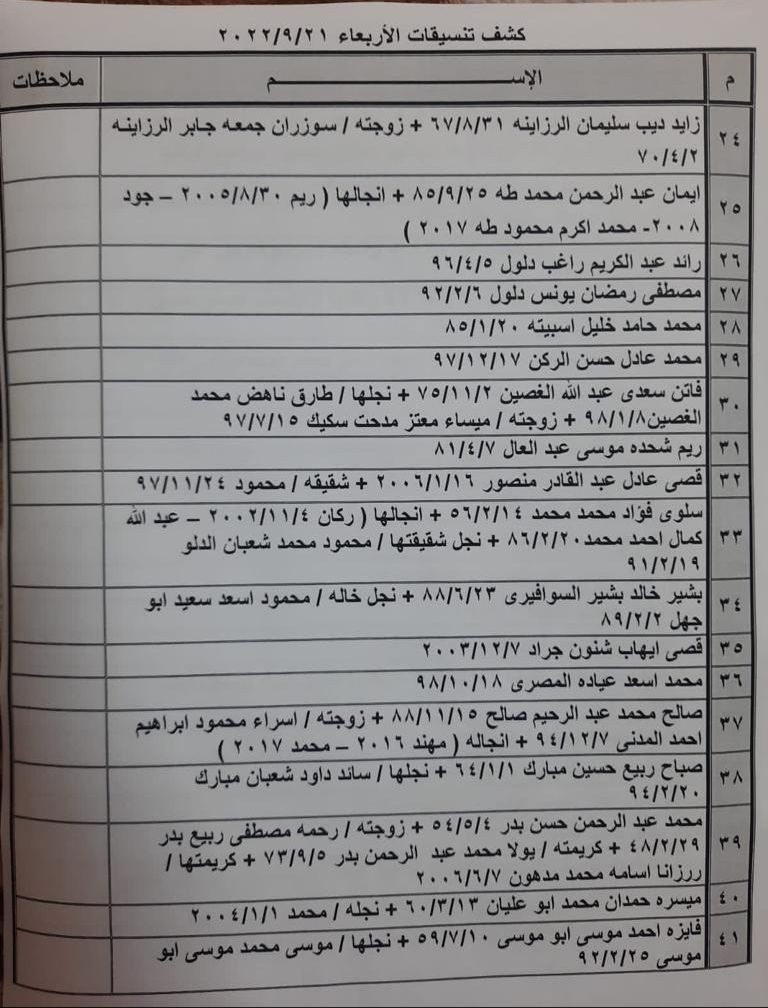 كشف تنسيقات الأربعاء ٢٠٢٢/٩/٢١
م الإســـــــــــــم ملاحظات
٢٤ زايد ديب سليمان الرزاينه ٦٧/٨/٣١ + زوجته / سوزران جمعه جابر الرزاينه
٧٠/٤/٢
٢٥ ايمان عبد الرحمن محمد طه ٨٥/٩/٢٥ + انجالها ( ريم ٢٠٠٥/٨/٣٠ – جود
٢٠٠٨- محمد اكرم محمود طه ٢٠١٧ )
٢٦ رائد عبد الكريم راغب دلول ٩٦/٤/٥
٢٧ مصطفى رمضان يونس دلول ٩٢/٢/٦
٢٨ محمد حامد خليل اسبيته ٨٥/١/٢٠
٢٩ محمد عادل حسن الركن ٩٧/١٢/١٧
٣٠ فاتن سعدى عبد الله الغصين ٧٥/١١/٢ + نجلها / طارق ناهض محمد
الغصين٩٨/١/٨ + زوجته / ميساء معتز مدحت سكيك ٩٧/٧/١٥
٣١ ريم شحده موسى عبد العال ٨١/٤/٧
٣٢ قصى عادل عبد القادر منصور ٢٠٠٦/١/١٦ + شقيقه / محمود ٩٧/١١/٢٤
٣٣ سلوى فؤاد محمد محمد ٥٦/٢/١٤ + انجالها ( ركان ٢٠٠٢/١١/٤ – عبد الله
كمال احمد محمد٨٦/٢/٢٠ + نجل شقيقتها / محمود محمد شعبان الدلو
٩١/٢/١٩
٣٤ بشير خالد بشير السوافيرى ٨٨/٦/٢٣ + نجل خاله / محمود اسعد سعيد ابو
جهل ٨٩/٢/٢
٣٥ قصى ايهاب شنون جراد ٢٠٠٣/١٢/٧
٣٦ محمد اسعد عياده المصرى ٩٨/١٠/١٨
٣٧ صالح محمد عبد الرحيم صالح ٨٨/١١/١٥ + زوجته / اسراء محمود ابراهيم
احمد المدنى ٩٤/١٢/٧ + انجاله ( مهند ٢٠١٦ – محمد ٢٠١٧ )
٣٨ صباح ربيع حسين مبارك ٦٤/١/١ + نجلها / سائد داود شعبان مبارك
٩٤/٢/٢٠
٣٩ محمد عبد الرحمن حسن بدر ٥٤/٥/٤ + زوجته / رحمه مصطفى ربيع بدر
٤٨/٢/٢٩ + كريمته / يولا محمد عبد الرحمن بدر ٧٣/٩/٥ + كريمتها /
ررزانا اسامه محمد مدهون ٢٠٠٦/٦/٧
٤٠ ميسره حمدان محمد ابو عليان ٦٠/٣/١٣ + نجله / محمد ٢٠٠٤/١/١
٤١ فايزه احمد موسى ابو موسى ٥٩/٧/١٠ + نجلها / موسى محمد موسى ابو
موسى ٩٢/٢/٢٥